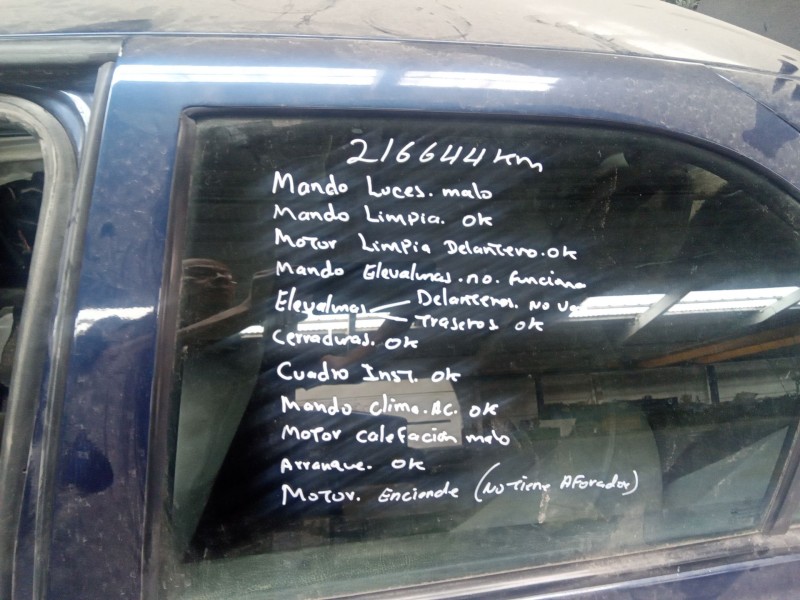 216644 Km
Mando Luces. malo
Mando Limpia. OK
Motor Limpia Delantero. OK
Mando Elevalunas. no. funciona
Elevalunas Delanteros. No Va
Traseros OK
Cerraduras. OK
Cuadro Inst. OK
Mando Clima. AC. OK
Motor Calefación malo
Arranque. OK
Motor. Enciende (No Tiene Aforador)